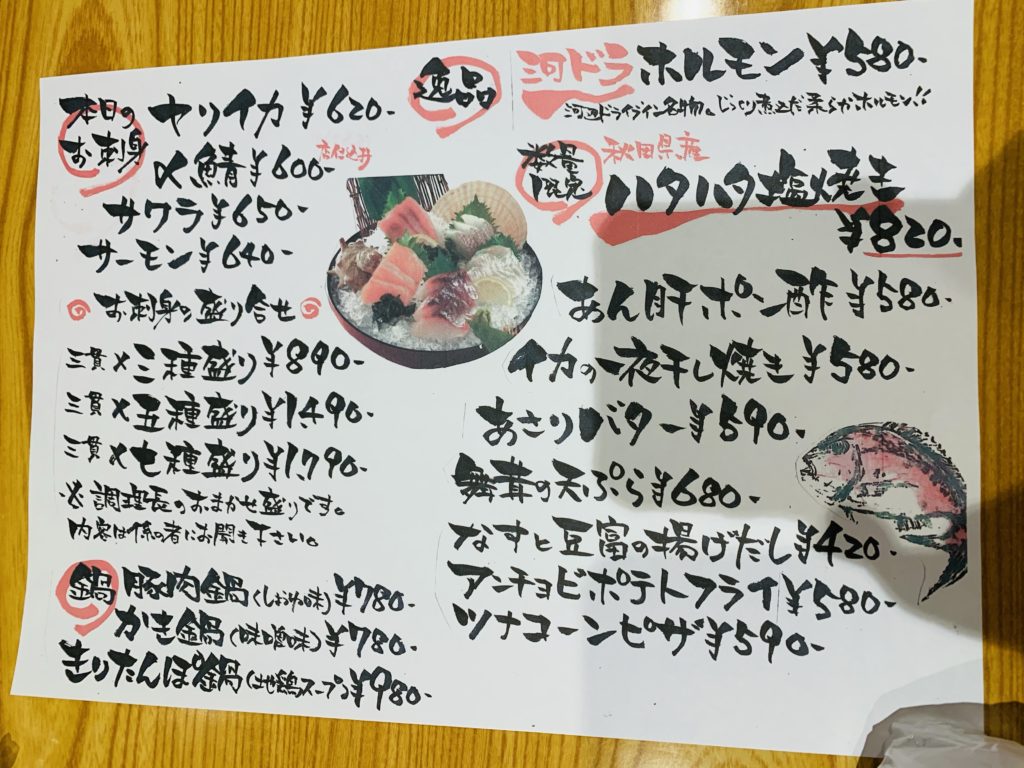 本日の
お刺身
ヤリイカ ¥620-
〆鯖¥600-
店仕込み
サワラ¥650-
サーモン¥640-
お刺身の盛り合せ
三貫×三種盛り¥890-
三貫×五種盛り¥1,490-
三貫×七種盛り¥1,790-
※調理長のおまかせ盛りです。
内容は係の者にお聞き下さい。
鍋
豚肉鍋(しょうゆ味)¥780-
かき鍋(味噌味)¥780-
きりたんぽ鍋(比内地鶏スープ)¥980-
逸品
河ドラホルモン¥580-
河辺ドライブイン名物。じっくり煮込だ柔らかホルモン!!
数量
限定
秋田県産
ハタハタ塩焼き
¥820-
あん肝ポン酢¥580-
イカの一夜干し焼き¥580-
あさりバター¥590-
舞茸の天ぷら¥680-
なすと豆富の揚げだし¥420-
アンチョビポテトフライ¥580-
ツナコーンピザ¥590-